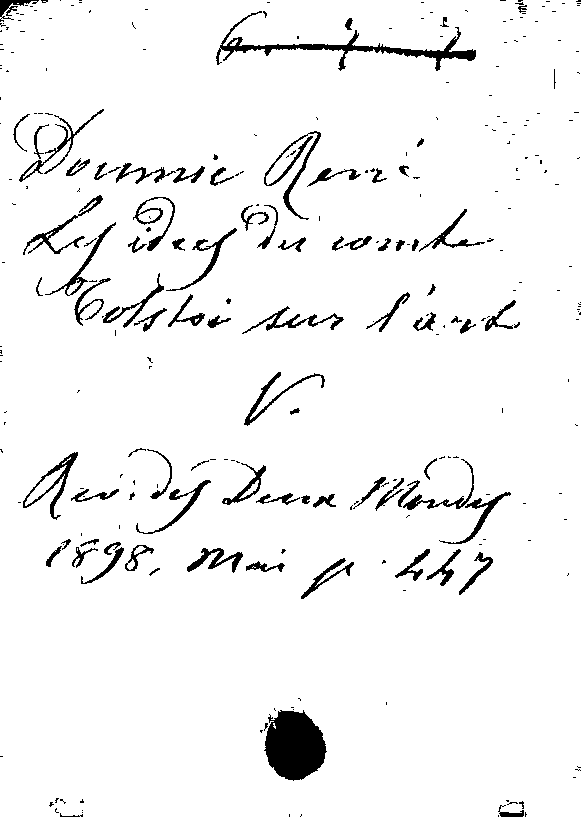 Doumic René
Les idées du comte
Tolstoi sur l'art
V.
Rev. des Deux Mondes
1898, Mai p. 447